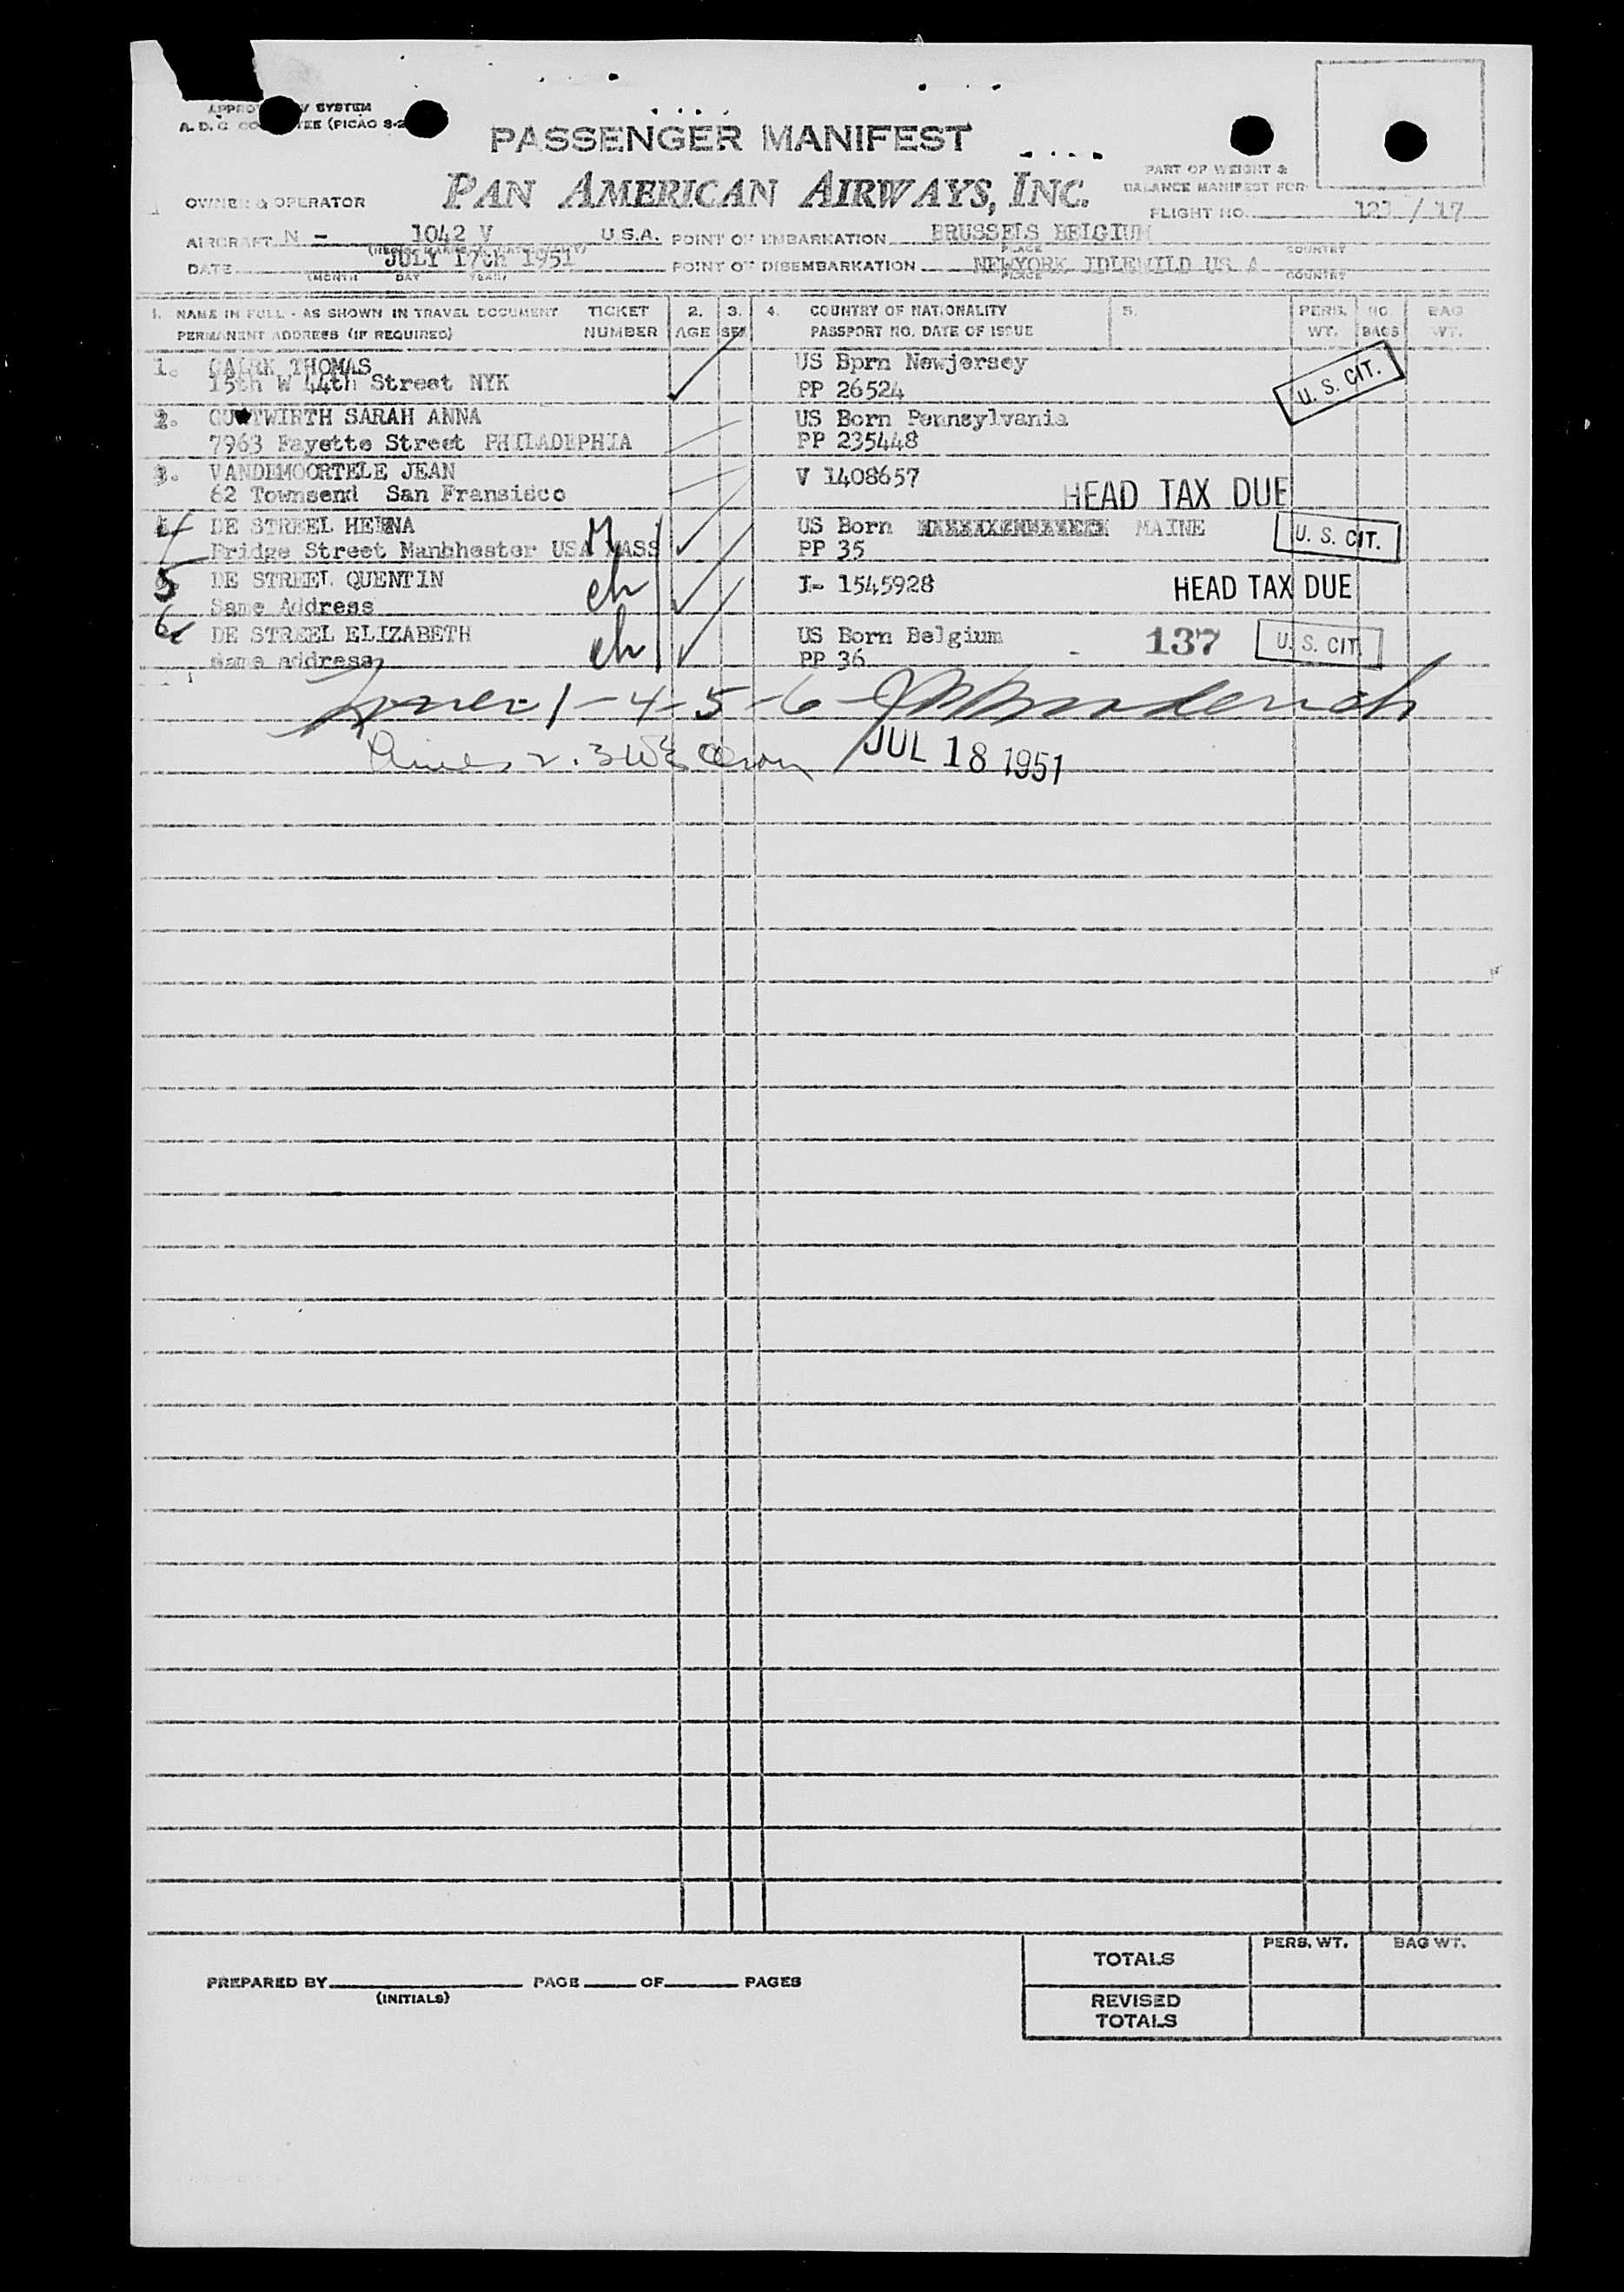 SYSTEM
A. D. C.
PASSENGER MANIFEST
PART OF WEIGHT &
BALANCE MANIFEST FOR
OWNER & OPERATOR PAN AMERICAN AIRWAYS, INC.
FLIGHT NO. / 17
AIRCRAFT N - 1042 V U.S.A. POINT OF EMBARKATION BRUSSELS BELGIUM
PLACE COUNTRY
DATE JULY 17th 1951 POINT OF DISEMBARKATION NEWYORK IDLEWILD US A
(MONTH DAY YEAR) PLACE COUNTRY
1. NAME IN FULL - AS SHOWN IN TRAVEL DOCUMENT TICKET 2. 3. 4. COUNTRY OF NATIONALITY 5. PERS. NO. BAG
PERMANENT ADDRESS (IF REQUIRED) NUMBER AGE SEX PASSPORT NO. DATE OF ISSUE WT. BAGS WT.
1. THOMAS US Bprn Newjersey
15th W 44th Street NYK PP 26524 U. S. CIT.
2. SARAH ANNA US Born Pennsylvania
7963 Fayette Street PHILADEPHIA PP 235448
3. VANDEMOORTELE JEAN V 1408657
62 Townsend San Fransisco HEAD TAX DUE
4 DE STREEL HELENA M US Born MAINE U. S. CIT.
Bridge Street Manbhester USA MASS PP 35
5 DE STREEL QUENTIN ch I- 1545928 HEAD TAX DUE
Same Address
6 DE STREEL ELIZABETH ch US Born Belgium 137 U. S. CIT.
same address PP 36
1 - 4 - 5 - 6 -
2. 3 JUL 18 1951
TOTALS PERS. WT. BAG WT.
PREPARED BY PAGE OF PAGES
(INITIALS)
REVISED
TOTALS